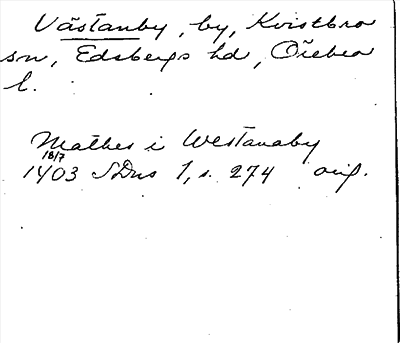 Västanby, by, Kvistbro
sn, Edsbergs hd, Örebro
l.
Mathes i Westanaby
18/7
1403 SDns 1, s. 274 orig.